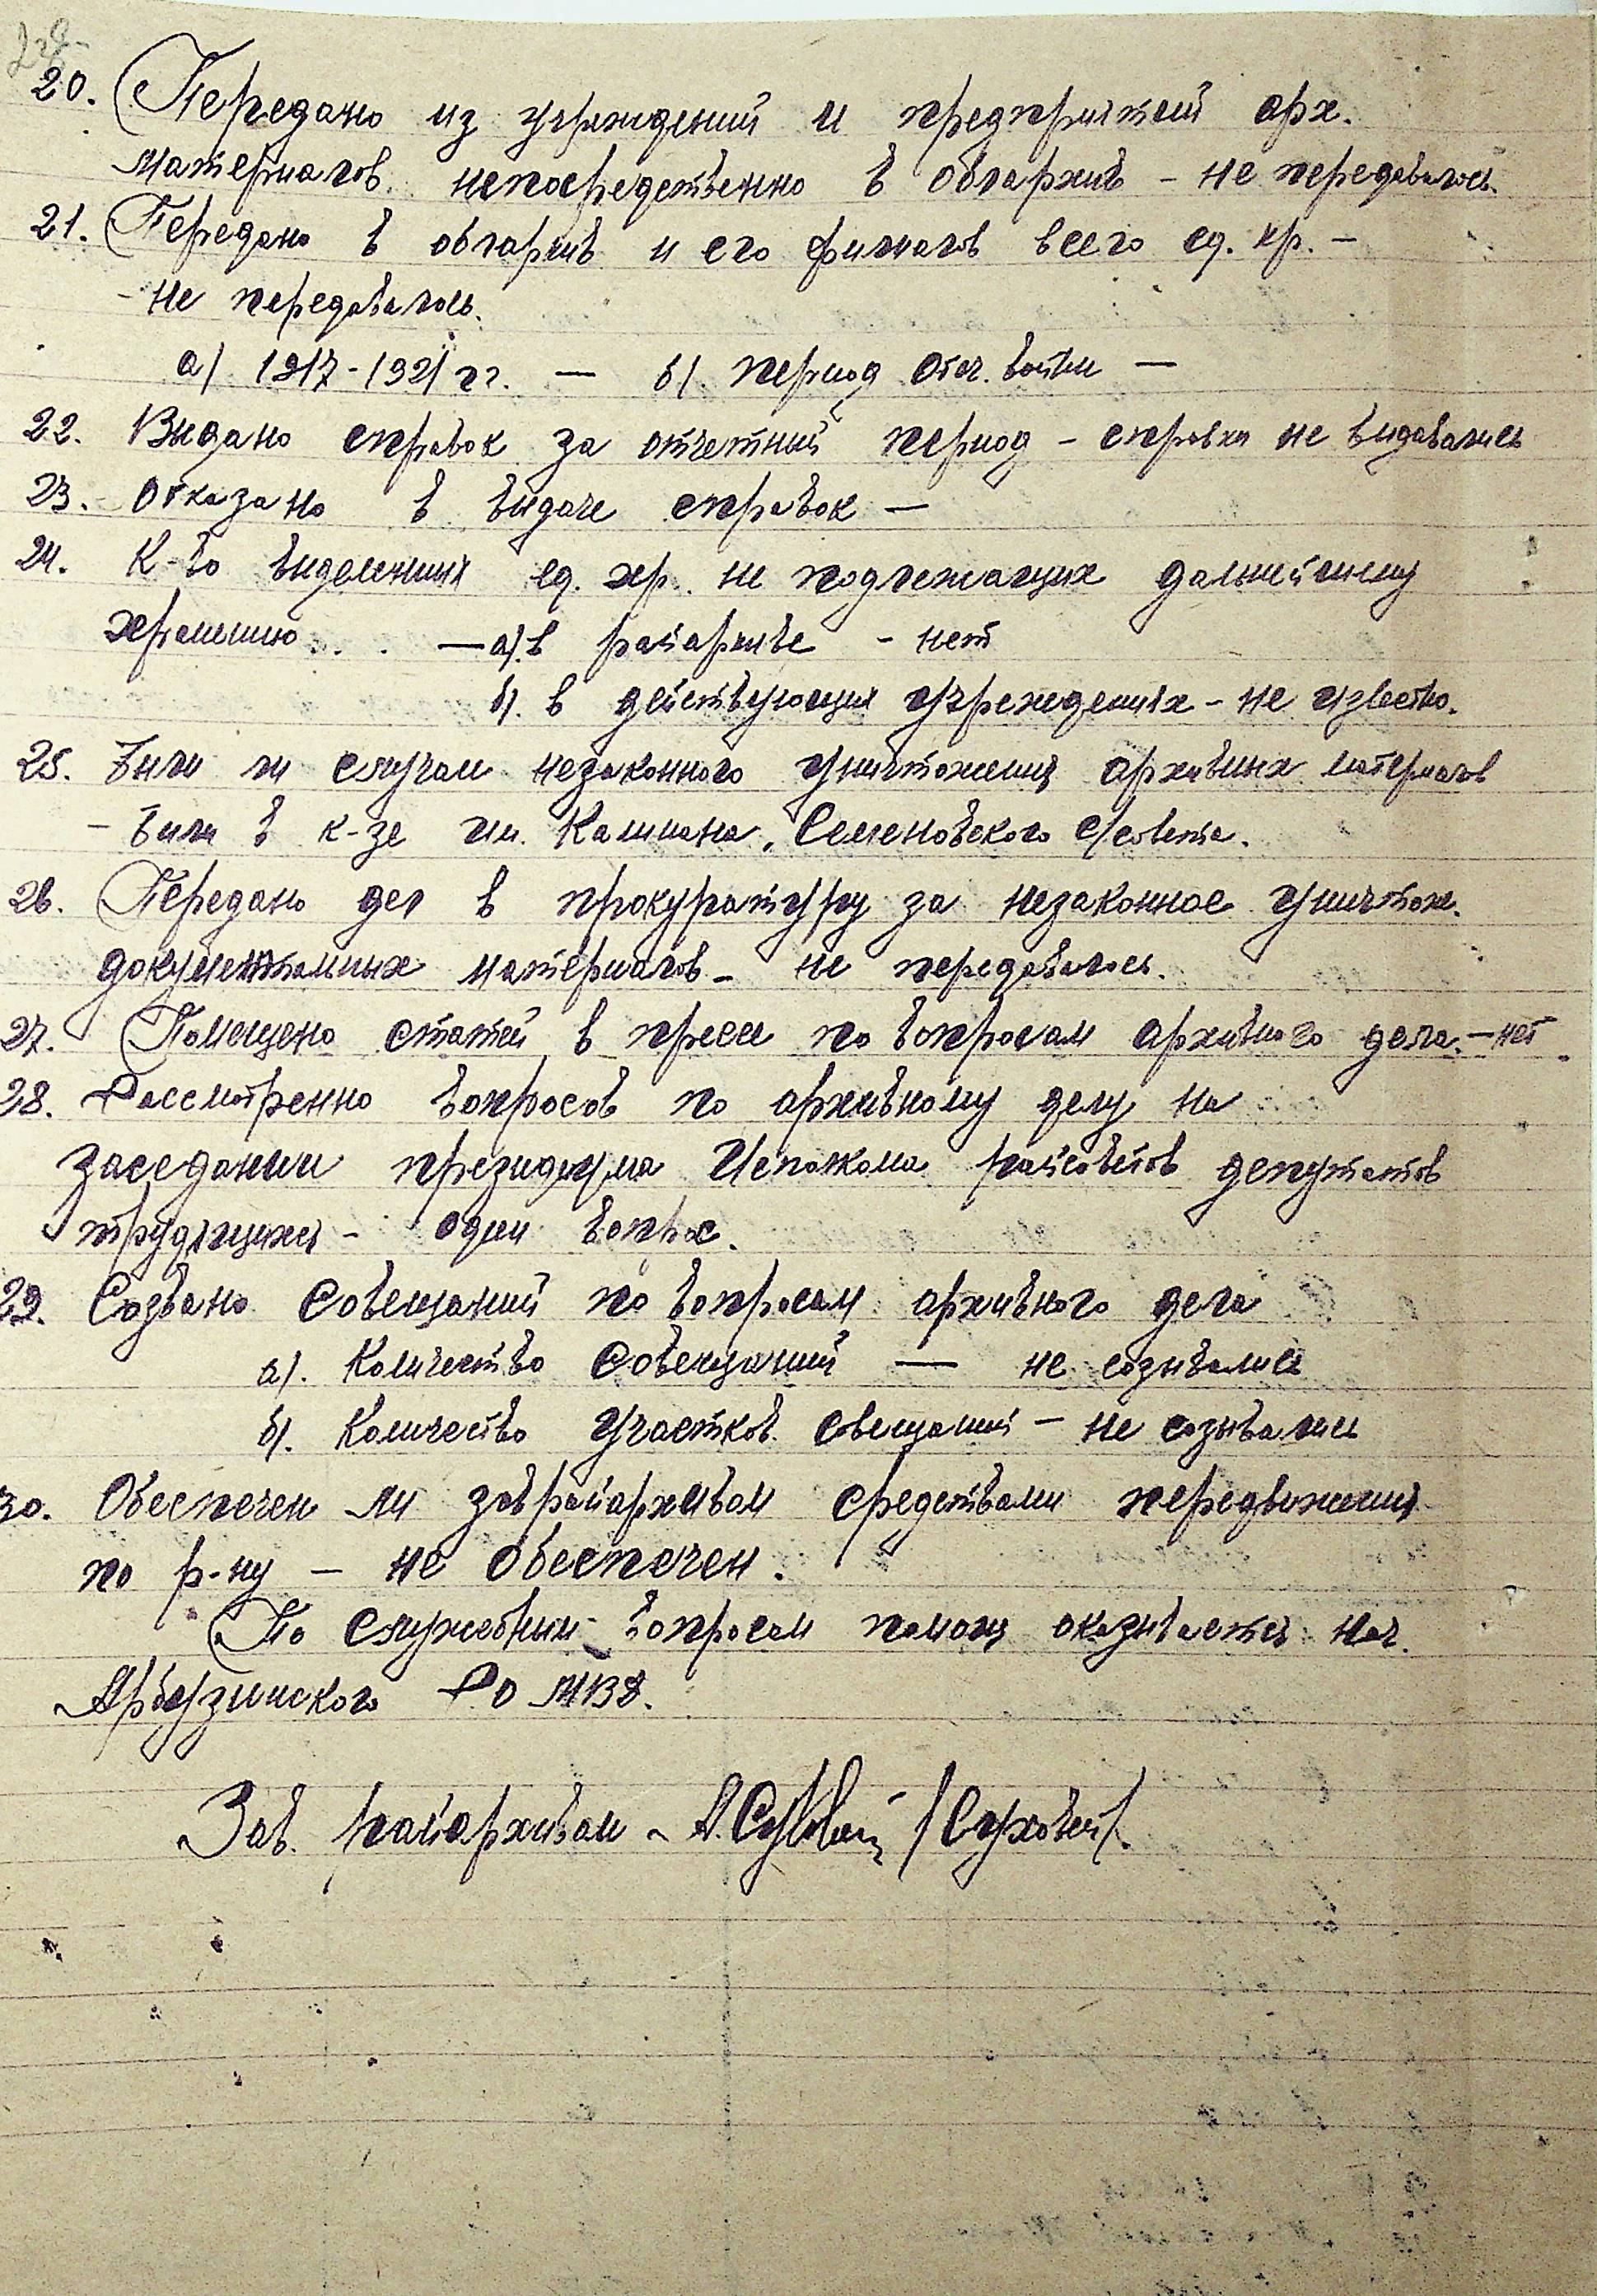 20. Передано из учреждений и предприятий арх.
материалов непосредственно в облархив - не передавалось.
21. Передано в облархив и его филиалов всего ед. хр. -
- не передавалось.
а) 1917-1921 гг. — б) период Отеч. войны —
22. Выдано справок за отчетный период - справки не выдавались
23. Отказано в выдаче справок —
24. К-во выделенных ед. хр. не подлежащих дальнейшему
хранению . . . — а). в райархиве - нет
б). в действующих учреждениях - не известно.
25. Были ли случаи незаконного уничтожения архивных материалов
- были в к-зе им. Калинина, Семеновского с/совета.
26. Передано дел в прокуратуру за незаконное уничтож.
документальных материалов - не передавалось.
27. Помещено статей в прессе по вопросам архивного дела. - нет.
28. Рассмотренно вопросов по архивному делу на
заседании президиума Исполкома райсоветов депутатов
трудящихся - один вопрос.
29. Созвано совещаний по вопросам архивного дела
а). Количество совещаний — не созывались
б). Количество участков. совещаний - не созывались
30. Обеспечен ли заврайархивом средствами передвижения
по р-ну - не обеспечен.
По служебным вопросам помощ оказывается нач.
Арбузинского РО МВД.
Зав. райархивом - А. Суховей /Суховей/.